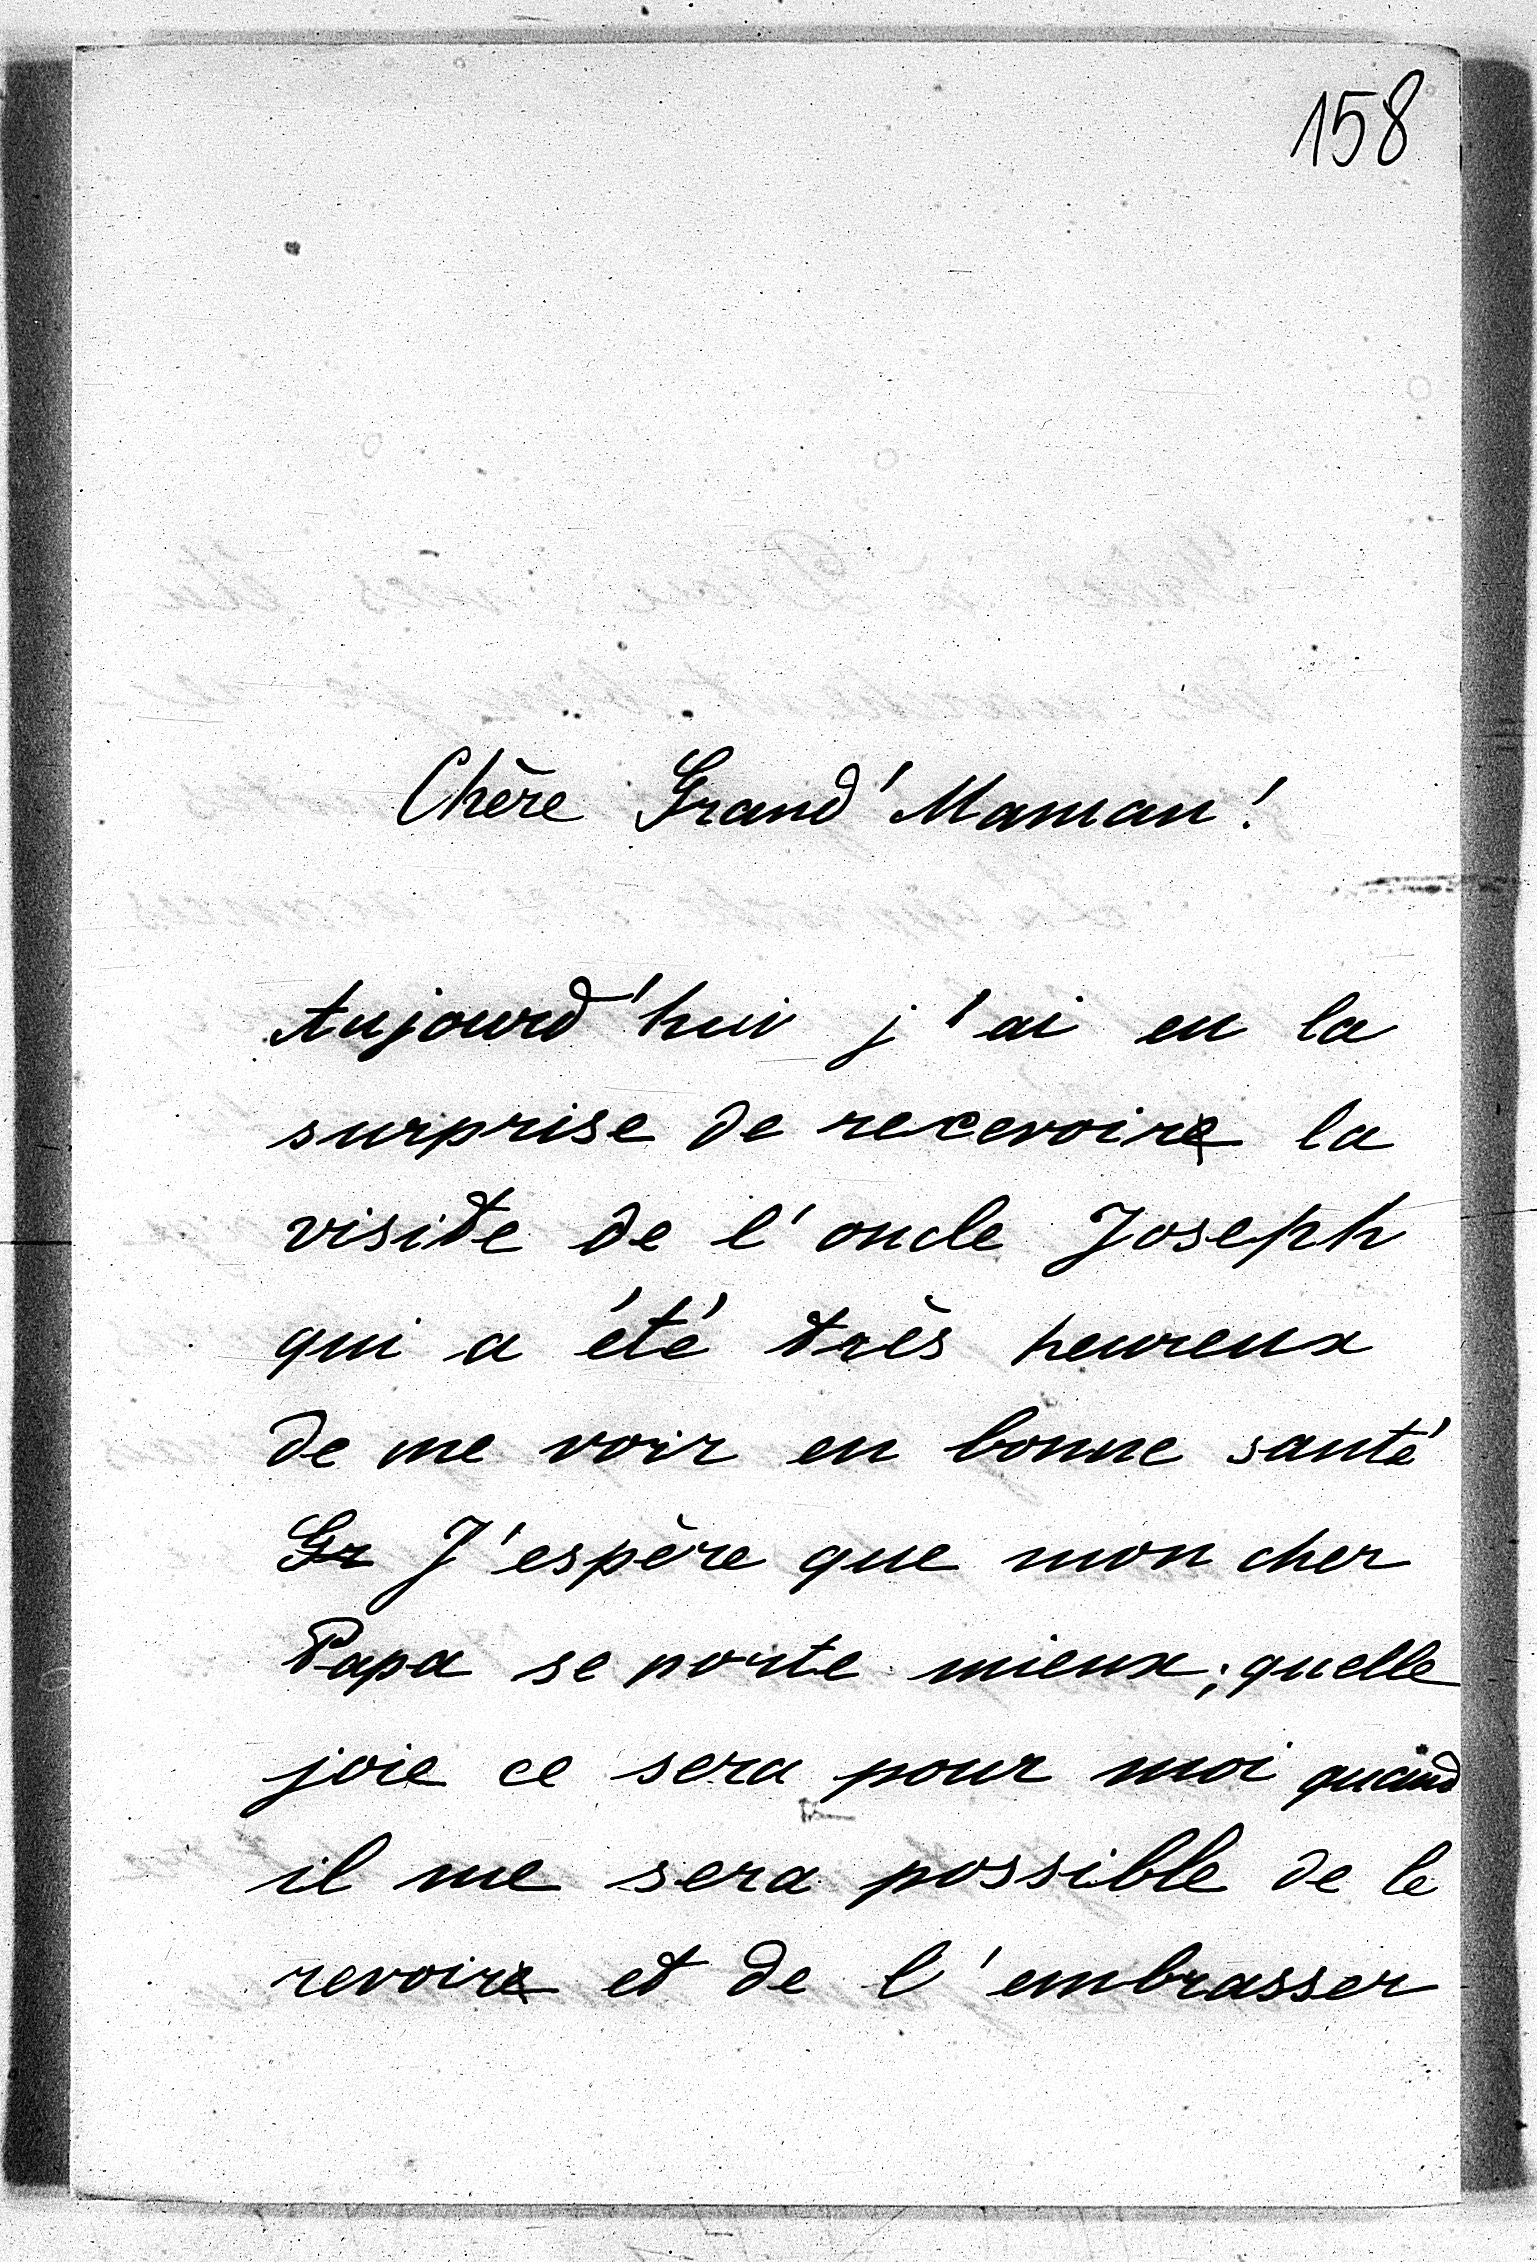 158
Chère Grand'Maman!
Aujourd'hui j'ai eu la
surprise de recevoir la
visite de l'oncle Joseph
qui a été très heureux
de me voir en bonne santé
Gr J'espère que mon cher
Papa se porte mieux; quelle
joie ce sera pour moi quand
il me sera possible de le
revoir et de l'embrasser